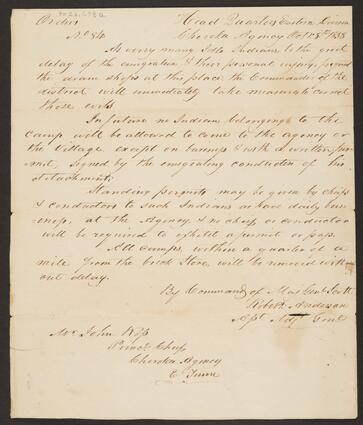 Orders
No 84
Head Quarters Eastern Division
Cherokee Agency Oct 8th 1838
As very many Idle Indians to the great
delay of the emigration & their personal injury, frequent
the dram shops at this place the Commander of the
district will immediately take measures to correct
those evils
In future no Indian belonging to the
camp will be allowed to come to the agency or
the village except on business & with a written per
mit, signed by the emigrating conductor of his
detachment.
Standing permits may be given by chiefs
& conductors to such Indians as have daily busi
ness, at the Agency, & no chief or conductor
will be required to exhibit a permit or pass.
All camps, within a quarter of a
mile from the brick Store will be removed with
out delay.
By Command of Maj Genl Scott
Robert Anderson
Asst Adj Genl
Mr John Ross
Princl Chief
Cherokee Agency
E Tenne